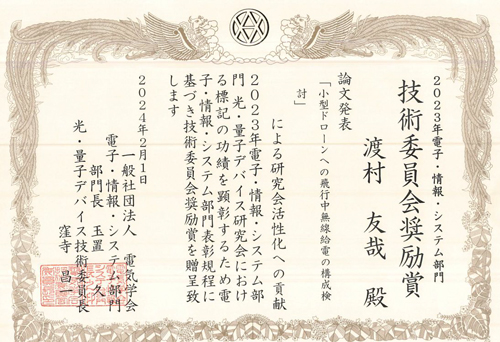 2023年電子・情報・システム部門
技術委員会奨励賞
渡村 友哉 殿
論文発表
「小型ドローンへの飛行中無線給電の構成検
討」
による研究会活性化への貢献
2023年電子・情報・システム部
門 光・量子デバイス研究会におけ
る標記の功績を顕彰するため電
子・情報・システム部門表彰規程に
基づき技術委員会奨励賞を贈呈致
します
2024年2月1日
一般社団法人 電気学会
電子・情報・システム部門
部門長 玉置 久
光・量子デバイス技術委員長
窪寺 昌一